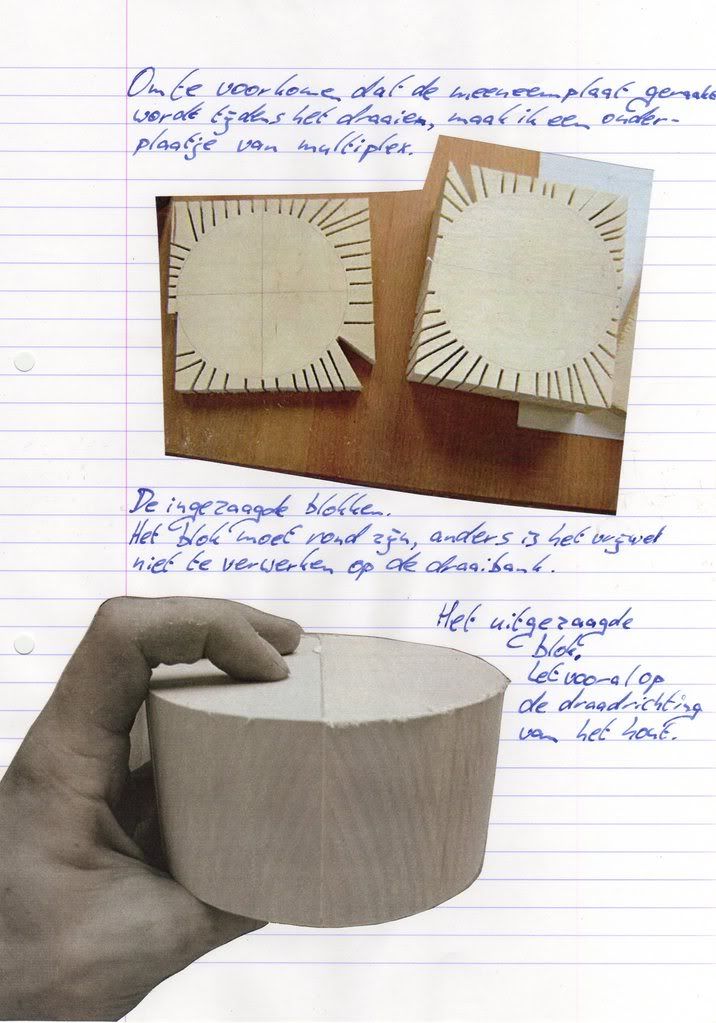 Om te voorkomen dat de meeneemplaat geraakt
wordt tijdens het draaien, maak ik een onder-
plaatje van multiplex.
De ingezaagde blokken.
Het blok moet rond zijn, anders is het vrijwel
niet te verwerken op de draaibank.
Het uitgezaagde
blok.
Let vooral op
de draadrichting
van het hout.